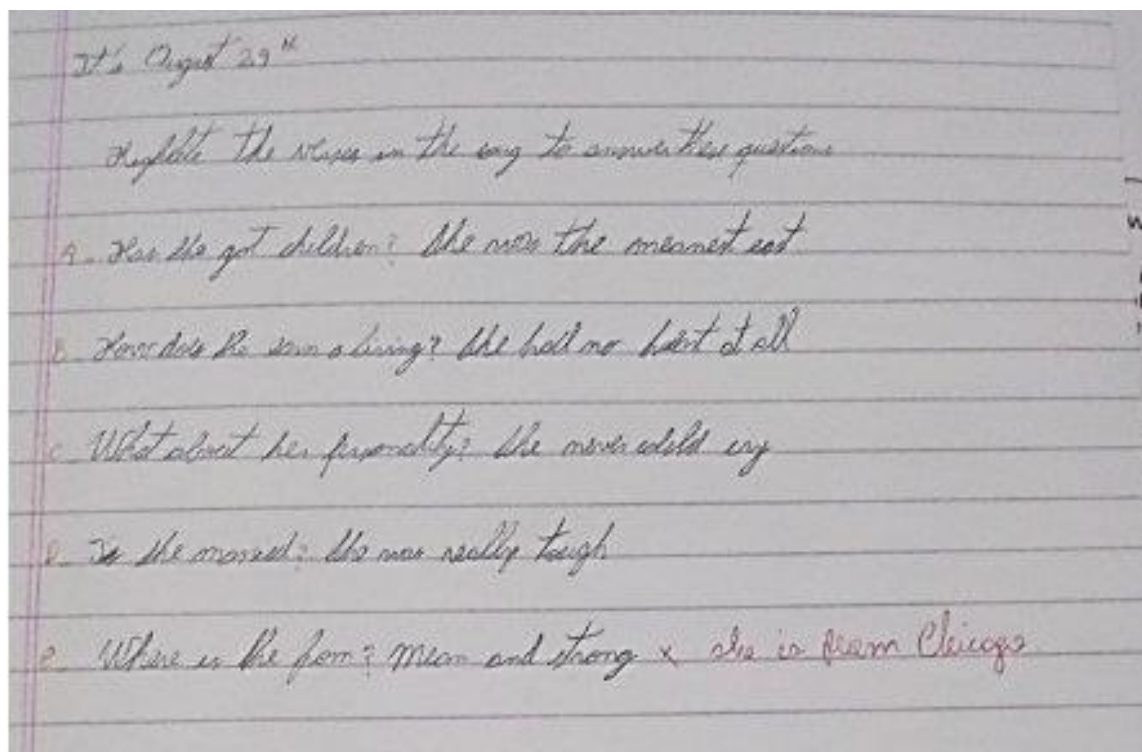 It's August 29th
Highlite the verses in the song to answer these questions
A. Has she got children? She was the meannest cat
B. How does she earn a living? She had no heart at all
C. What about her personality? She never could cry
D. Is she married? She was really tough
E. Where is she from? Mean and strong x she is from Chicago